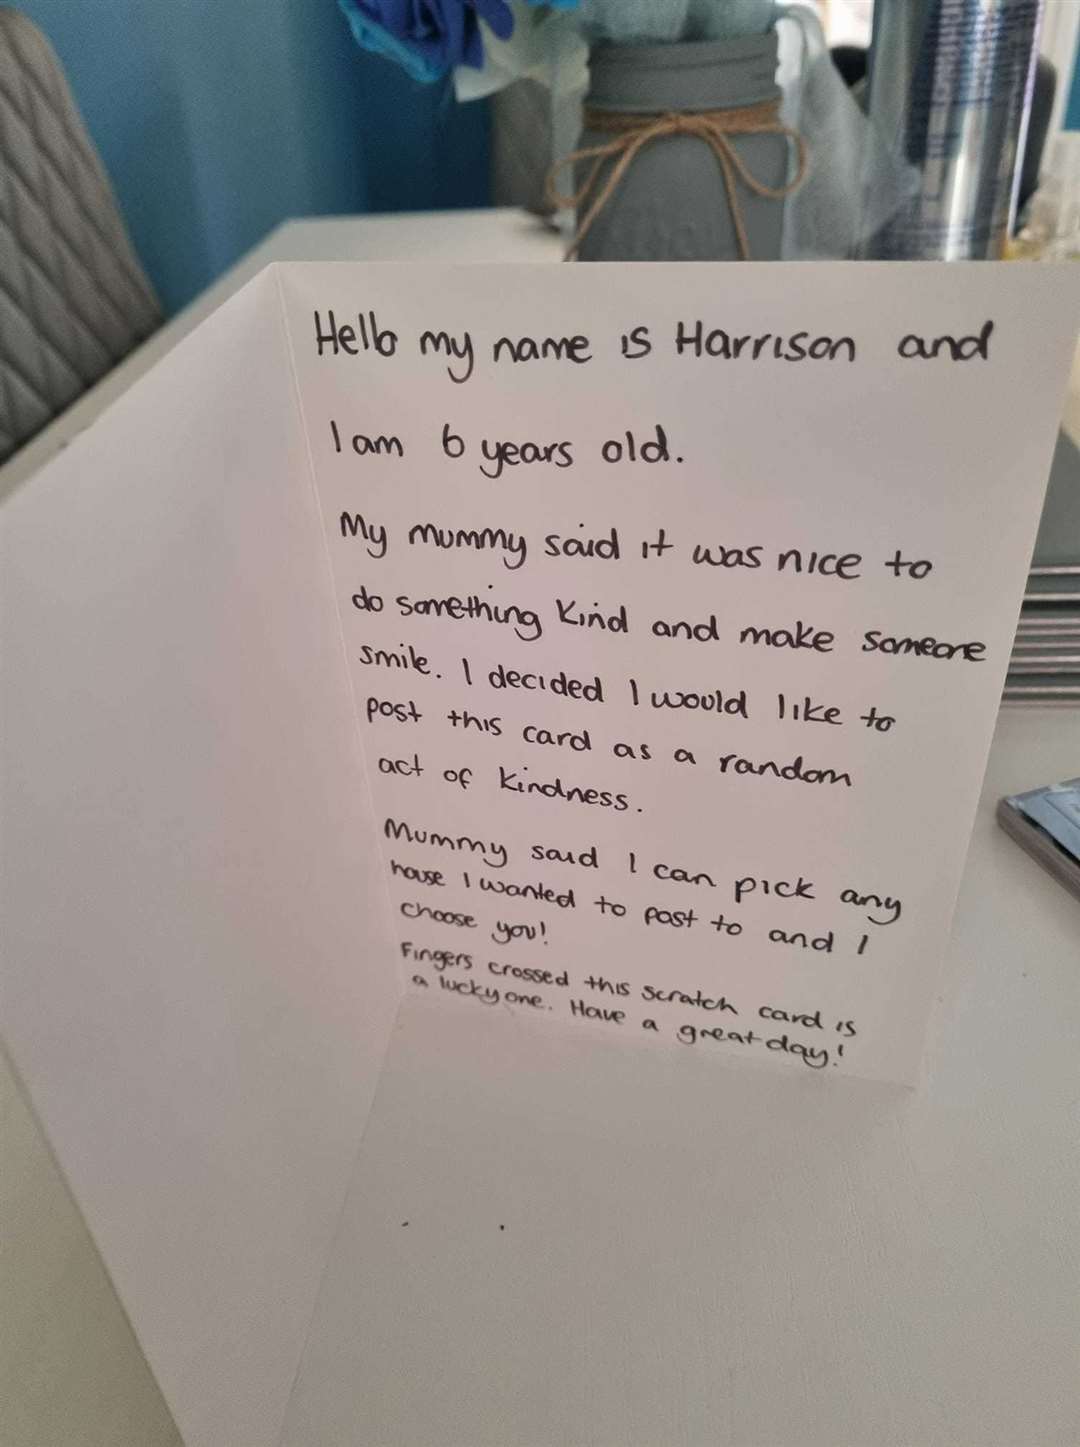 Hello my name is Harrison and
I am 6 years old.
My mummy said it was nice to
do something kind and make someone
smile. I decided I would like to
post this card as a random
act of kindness.
Mummy said I can pick any
house I wanted to post to and I
choose you!
Fingers crossed this scratch card is
a lucky one. Have a great day!